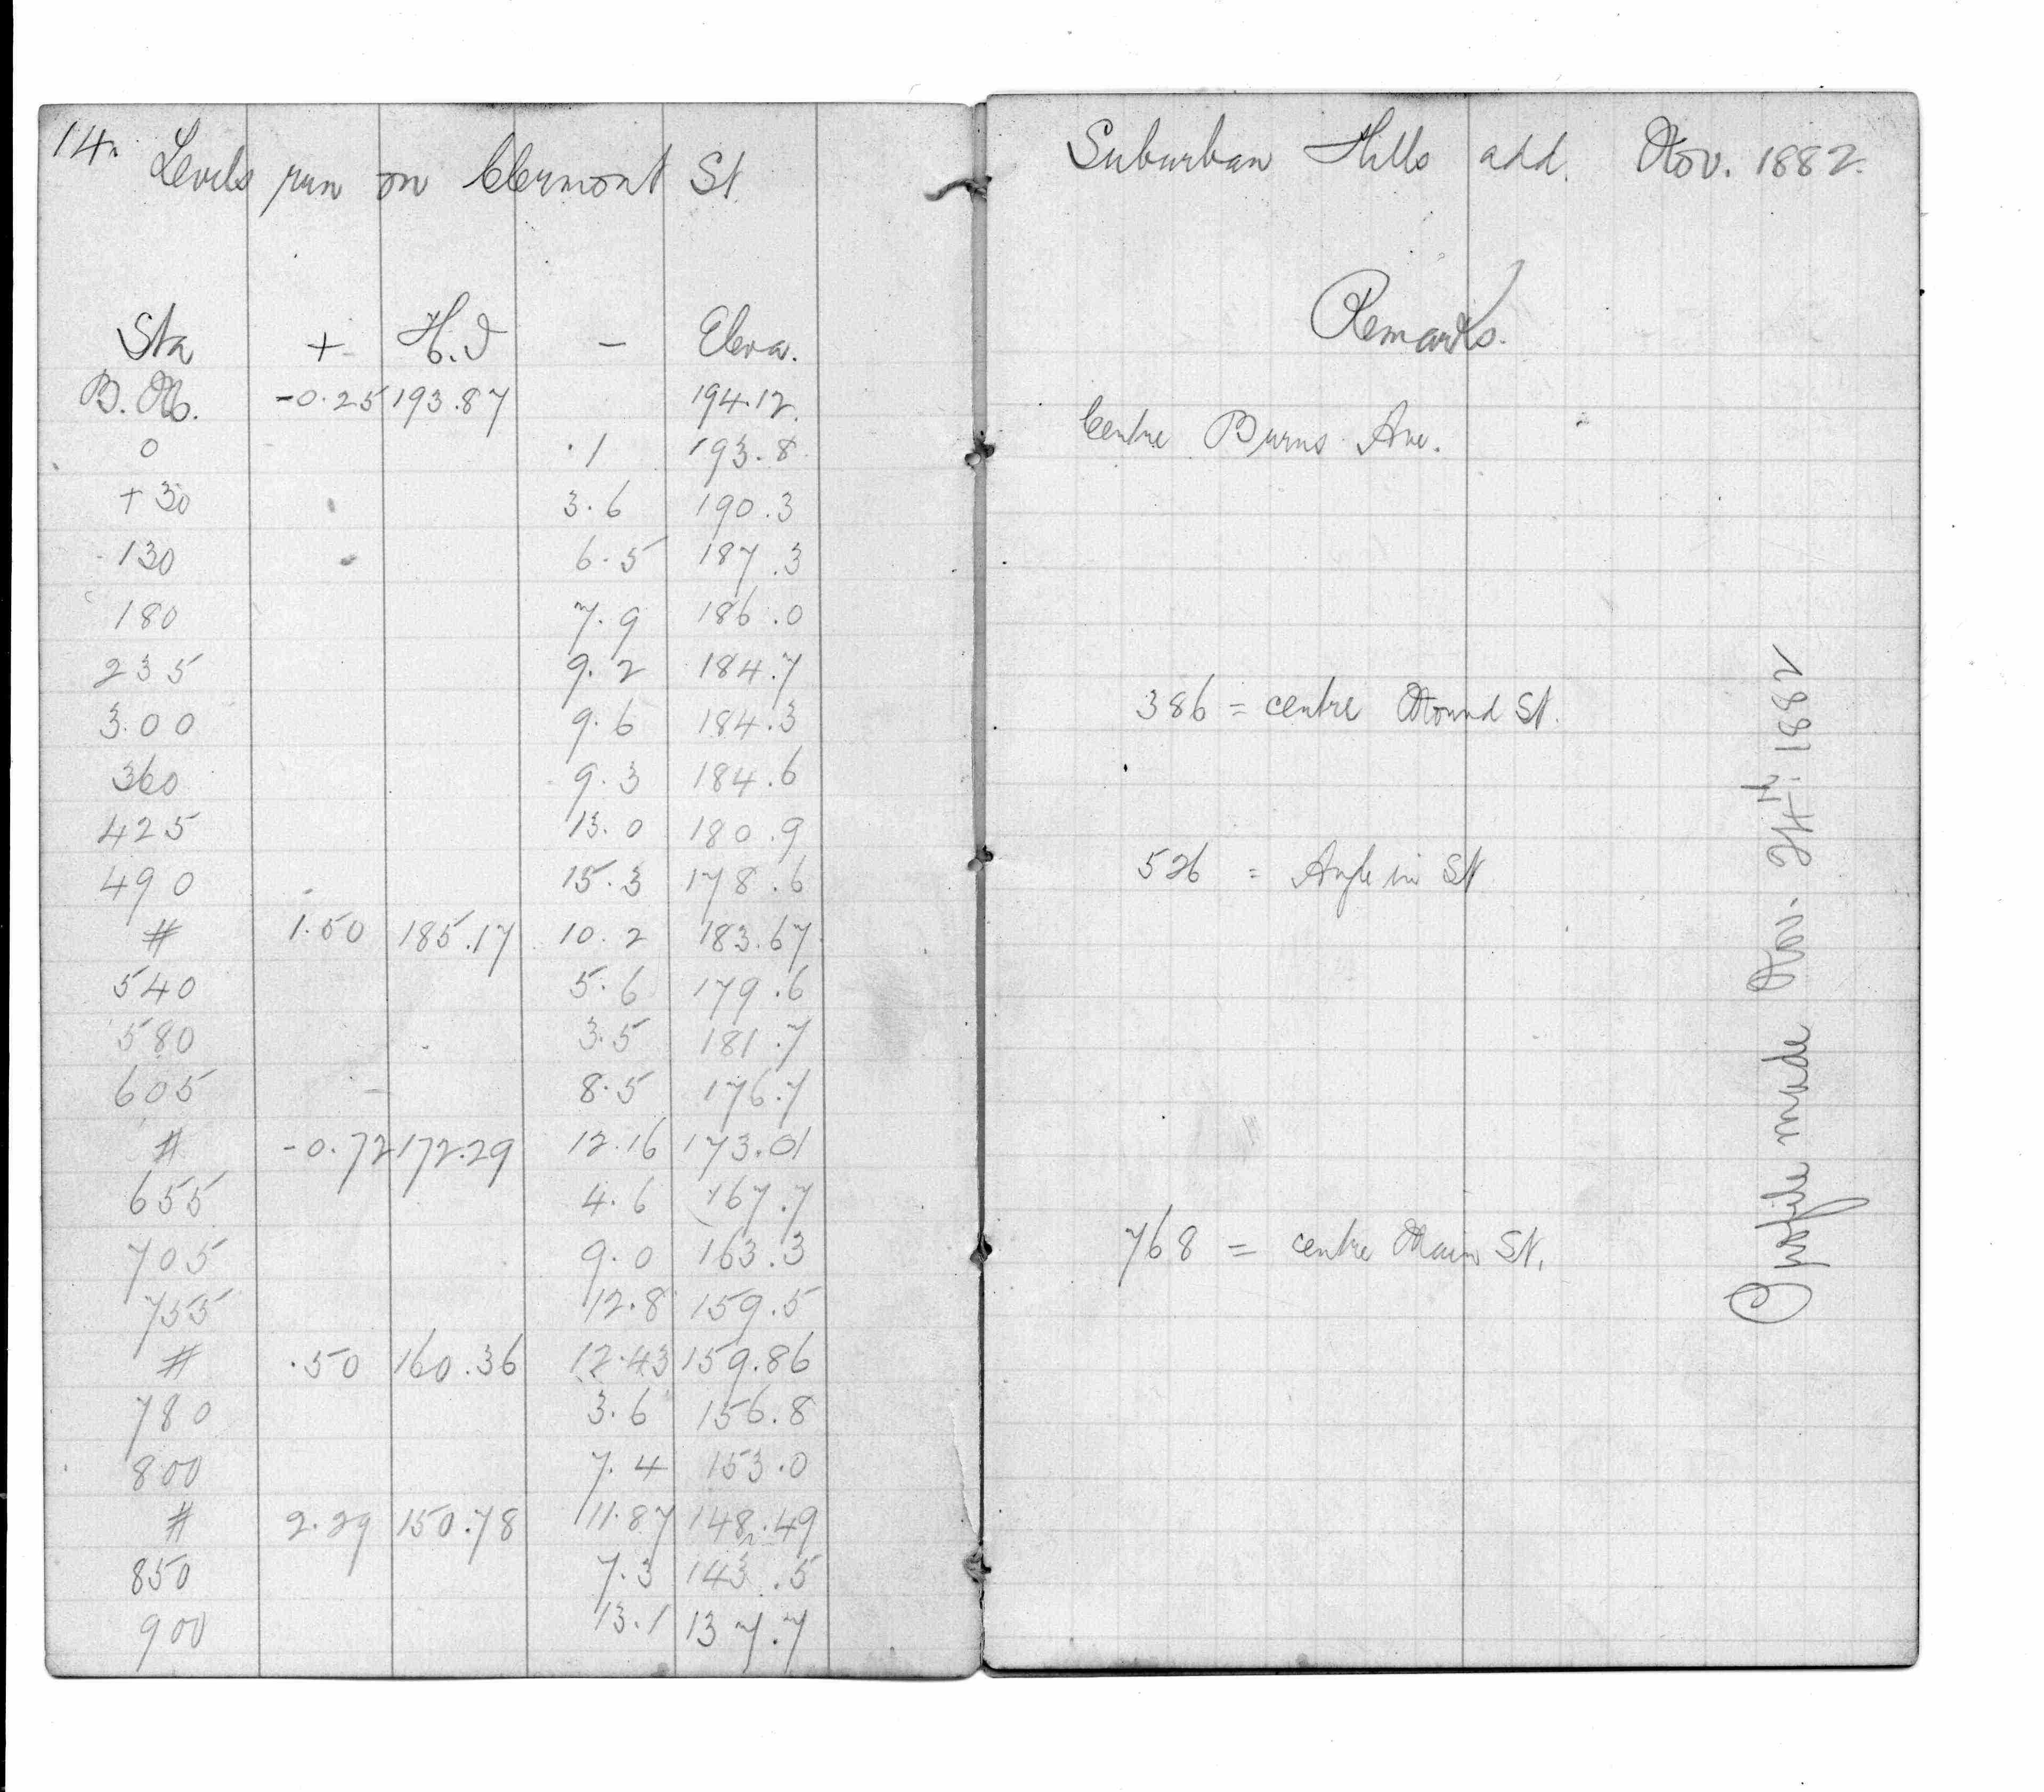 14.
Levels run on Clermont St.
Sta + H.I - Eleva.
B.M. -0.25 193.87 194.12.
0 .1 193.8
+30 3.6 190.3
130 6.5 187.3
180 7.9 186.0
235 9.2 184.7
3.00 9.6 184.3
360 9.3 184.6
425 13.0 180.9
490 15.3 178.6
# 1.50 185.17 10.2 183.67
540 5.6 179.6
580 3.5 181.7
605 8.5 176.7
# -0.72 172.29 12.16 173.01
655 4.6 167.7
705 9.0 163.3
755 12.8 159.5
# .50 160.36 12.43 159.86
780 3.6 156.8
800 7.4 153.0
# 2.29 150.78 11.87 148.49
850 7.3 143.5
900 13.1 137.7
Suburban Hills add. Nov. 1882.
Remarks.
Centre Burns Ave.
386 = centre Mound St.
526 = Angle in St
768 = centre Main St.
Profile made Nov. 24th. 1882